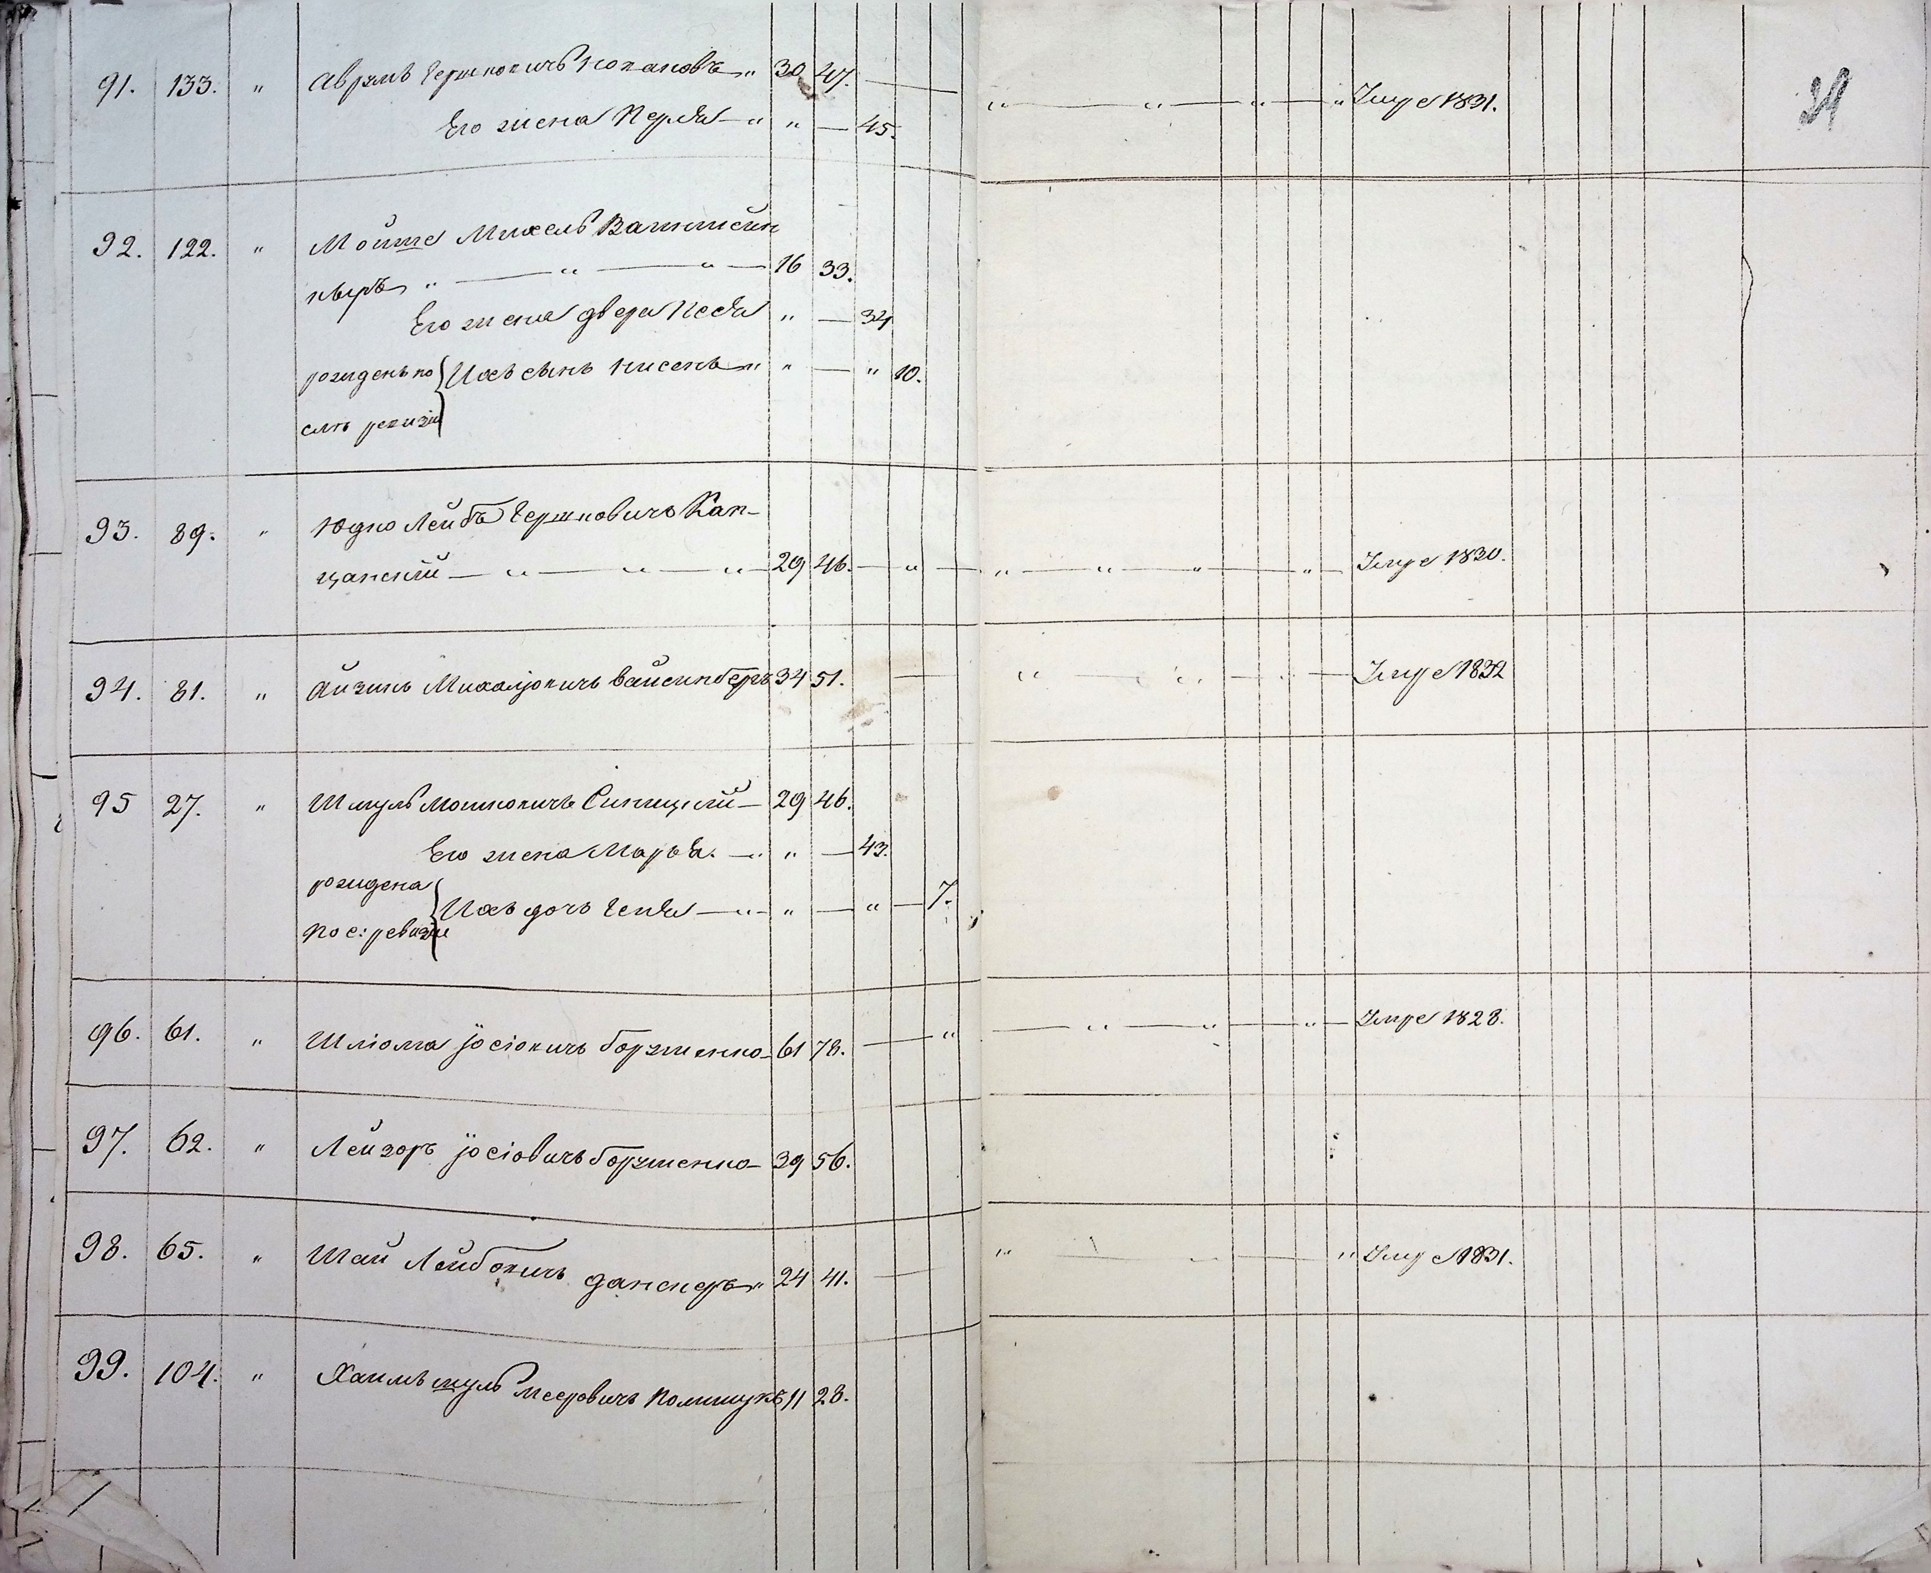 91. 133. " Аврумъ Гершковичъ Кохановъ " 30 47. — " — " — " — " Умре 1831.
Его жена Перля — " " — 45.
92. 122. " Мойше Михель Ваинштейн
керъ " — " — " — 16 33.
Его жена двера Песя " — 34
рожденъ по { Ихъ сынъ Нисенъ " " — " 10.
слѣ ревизіи
93. 89. " Юдко Лейбъ Гершковичъ Кап-
цанский — " — " — " — 29 46. — " — " — " — " — " — Умре 1830.
94. 81. " Айзикъ Михайловичъ Вайсинберъ 34 51. — " — Умре 1832
95 27. " Шмуль Мошковичъ Синицкий — 29 46.
Его жена Марья. — " " — 43.
рождена { Ихъ дочь Геня — " — " — " — 7.
пос: ревизіи
96. 61. " Шліома Іосіовичъ Борзиенко — 61 78. — " — " — " — " — Умре 1828.
97. 62. " Лейзоръ Іосіовичъ Борзиенко — 39 56.
98. 65. " Шай Лейбовичъ Данскеръ " 24 41. — " — " Умре 1831.
99. 104. " Хаимъ шуль Мееровичъ Полищукъ 11 28.